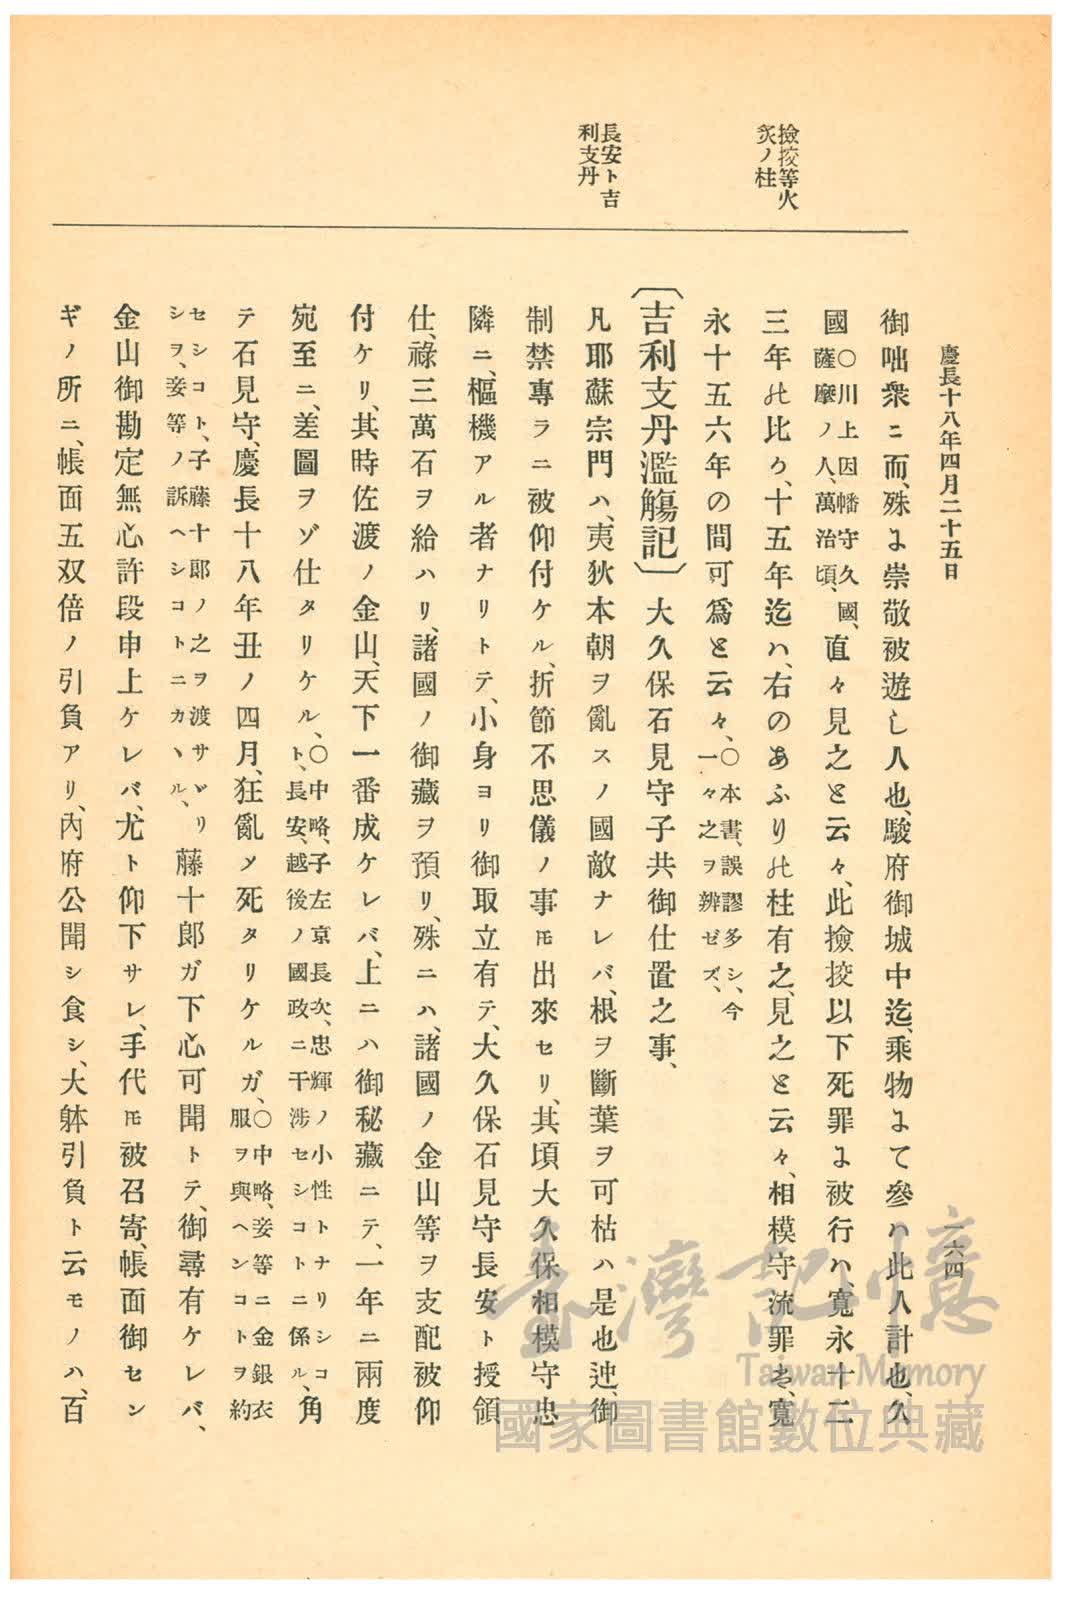 慶長十八年四月二十五日
一六四
撿挍等火
炙ノ柱
長安ト吉
利支丹
御咄衆ニ而、殊よ崇敬被遊し人也、駿府御城中迄、乘物よて參ハ此人計也、久
國〇川上因幡守久國、薩摩ノ人、萬治頃、直々見之と云々、此撿挍以下死罪よ被行ハ、寬永十二
三年此比ゟ、十五年迄ハ、右のあふり此柱有之、見之と云々、相模守流罪ハ、寬
永十五六年の間可爲と云々、〇本書、誤謬多シ、今一々之ヲ辨ゼズ、
〔吉利支丹濫觴記〕大久保石見守子共御仕置之事、
凡耶蘇宗門ハ、夷狄本朝ヲ亂スノ國敵ナレバ、根ヲ斷葉ヲ可枯ハ是也迚、御
制禁專ラニ被仰付ケル、折節不思儀ノ事𪜈出來セリ、其頃大久保相模守忠
隣ニ、樞機アル者ナリトテ、小身ヨリ御取立有テ、大久保石見守長安ト授領
仕、祿三萬石ヲ給ハリ、諸國ノ御藏ヲ預リ、殊ニハ、諸國ノ金山等ヲ支配被仰
付ケリ、其時佐渡ノ金山、天下一番成ケレバ、上ニハ御秘藏ニテ、一年ニ兩度
宛至ニ、差圖ヲゾ仕タリケル、〇中略、子左京長次、忠輝ノ小性トナリシコト、長安、越後ノ國政ニ干涉セシコトニ係ル、角
テ石見守、慶長十八年丑ノ四月、狂亂〆死タリケルガ、〇中略、妾等ニ金銀衣服ヲ與ヘンコトヲ約
セシコト、子藤十郎ノ之ヲ渡サヾリシヲ、妾等ノ訴ヘシコトニカヽル、藤十郎ガ下心可聞トテ、御尋有ケレバ、
金山御勘定無心許段申上ケレバ、尤ト仰下サレ、手代𪜈被召寄、帳面御セン
ギノ所ニ、帳面五双倍ノ引負アリ、內府公聞シ食シ、大躰引負ト云モノハ、百
臺灣記憶
Taiwan Memory
國家圖書館數位典藏